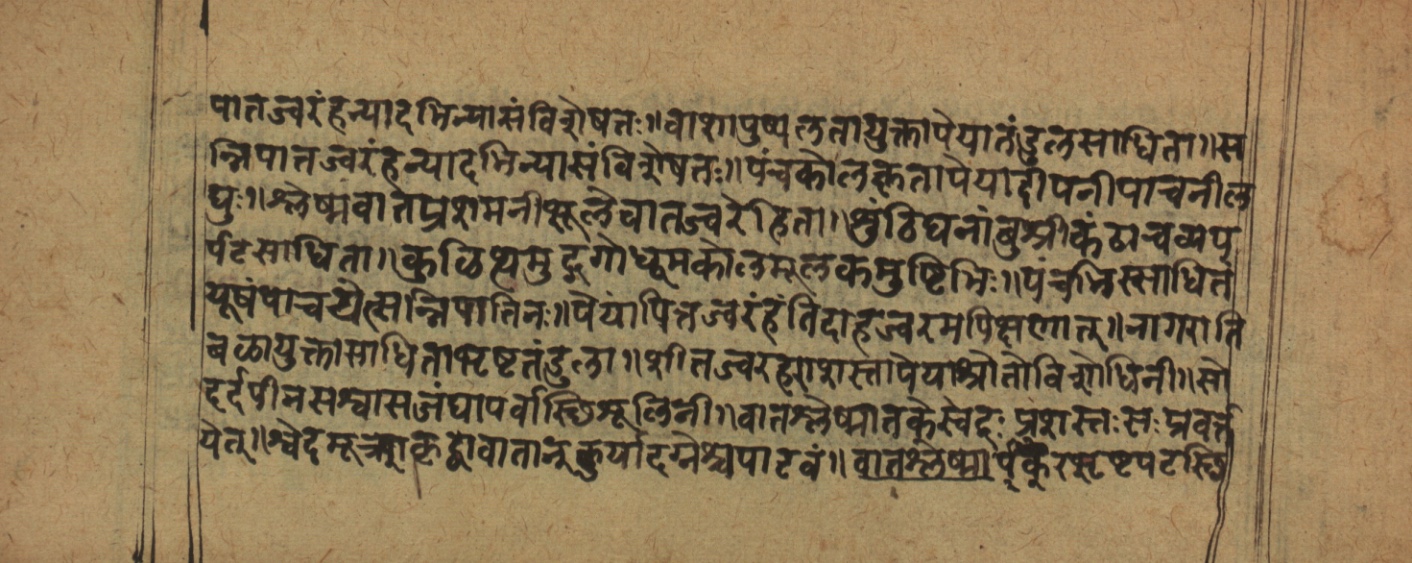 पातज्वरंहन्यादभिन्यासंविशेषतः॥वाशापुष्पलतायुक्तापेयातंडुलसाधिता॥स
न्निपातज्वरंहन्यादभिन्यासंविशेषतः॥पंचकोलकृतापेयादीपनीपाचनील
घुः॥श्लेष्मवातप्रशमनीशूलेवातज्वरेहिता॥शुंठिघनांबुश्रीकंठाचव्यप
र्पटसाधिता॥कुळिथ्थमुद्गगोधूमकोलमूलकमुष्टिभिः॥पंचभिस्साधितं
यूषंपाचयेत्सन्निपातिनः॥पेयांपित्तज्वरंहंतिदाहज्वरमपिक्षणात्॥नागराति
बळायुक्तासाधिताभृष्टतंडुला॥शीतज्वरहराशस्तापेयाश्रोतोविशोधिनी॥सो
दर्दपीनसश्वासजंघापर्वास्छिशूलिनी॥वातश्लेष्मातकेस्वेदः प्रशस्तःसःप्रवर्त्त
येत्॥श्वेदमूत्र वातान्कुर्यादग्नेश्चपाटवं॥वातश्लेष्मा